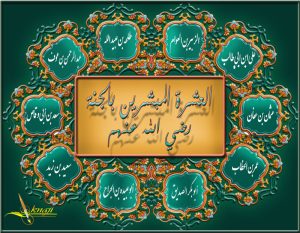 العشرة المبشرين بالجنة
رضي الله عنهم
الزبير بن العوام
طلحة بن عبيد الله
علي بن ابي طالب
عبد الرحمن بن عوف
عثمان بن عفان
سعد بن أبي وقاص
عمر بن الخطاب
سعيد بن زيد
أبو بكر الصديق
أبو عبيدة بن الجراح